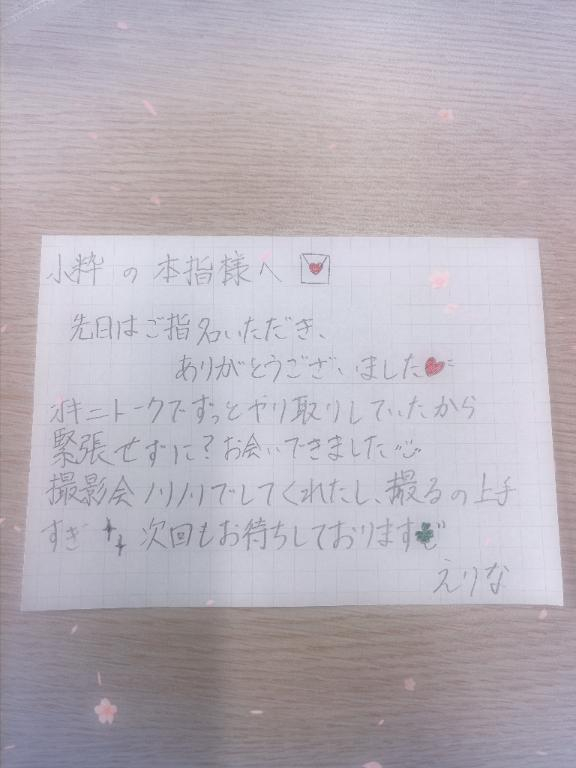 小粋の本指様へ
先日はご指名いただき、
ありがとうございました
オキニトークでずっとやり取りしていたから
緊張せずに?お会いできました
撮影会ノリノリでしてくれたし、撮るの上手
すぎ 次回もお待ちしております
えりな